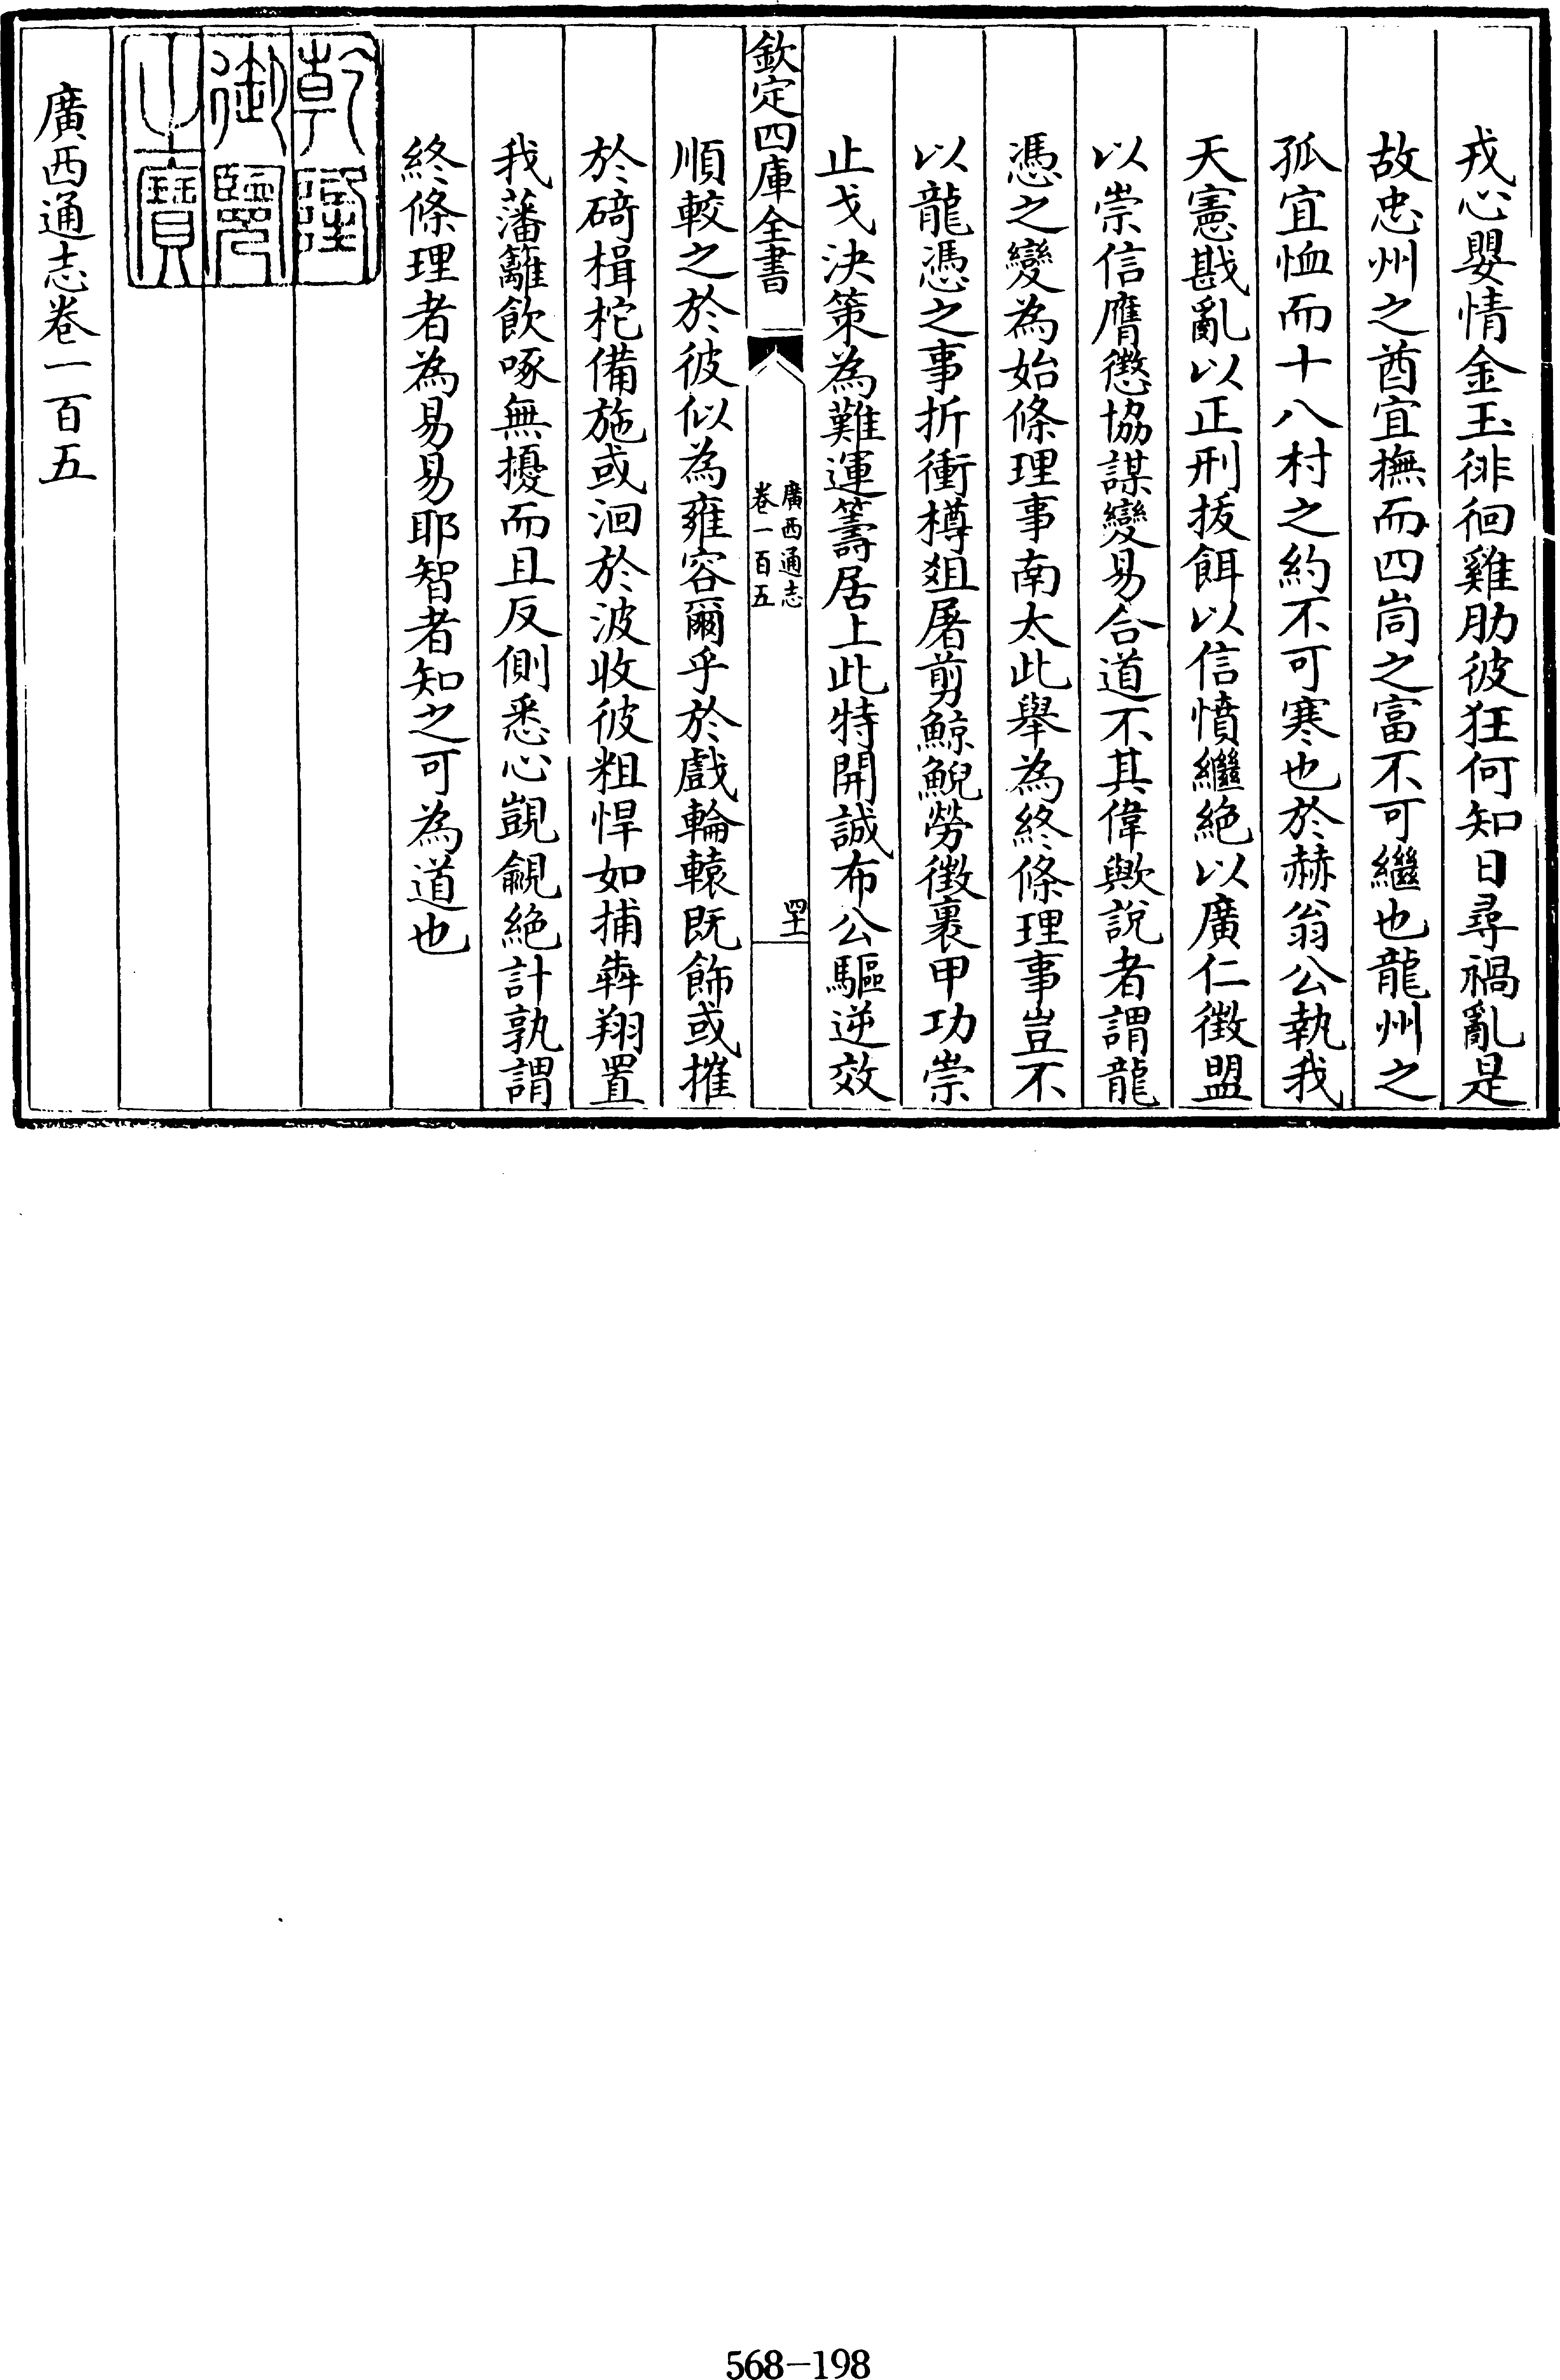 戎心嬰情金玉徘徊雞肋彼狂何知日尋禍亂是
故忠州之酋宜撫而四峝之富不可繼也龍州之
孤宜恤而十八村之約不可寒也於赫翁公執我
天憲戡亂以正刑拔餌以信憤繼絶以廣仁徵盟
以崇信膺懲協謀變易合道不其偉歟說者謂龍
憑之變為始條理事南太此舉為終條理事豈不
以龍憑之事折衝樽俎屠剪鯨鯢勞徵裹甲功崇
止戈決策為難運籌居上此特開誠布公驅逆效
欽定四庫全書
廣西通志
卷一百五
四十一
順較之於彼似為雍容爾乎於戲輪轅既飾或摧
於碕楫柁備施或洄於波收彼粗悍如捕犇翔置
我藩籬飲啄無擾而且反側悉心覬覦絶計孰謂
終條理者為易易耶智者知之可為道也
乾隆
御覽
之寶
廣西通志卷一百五
568-198